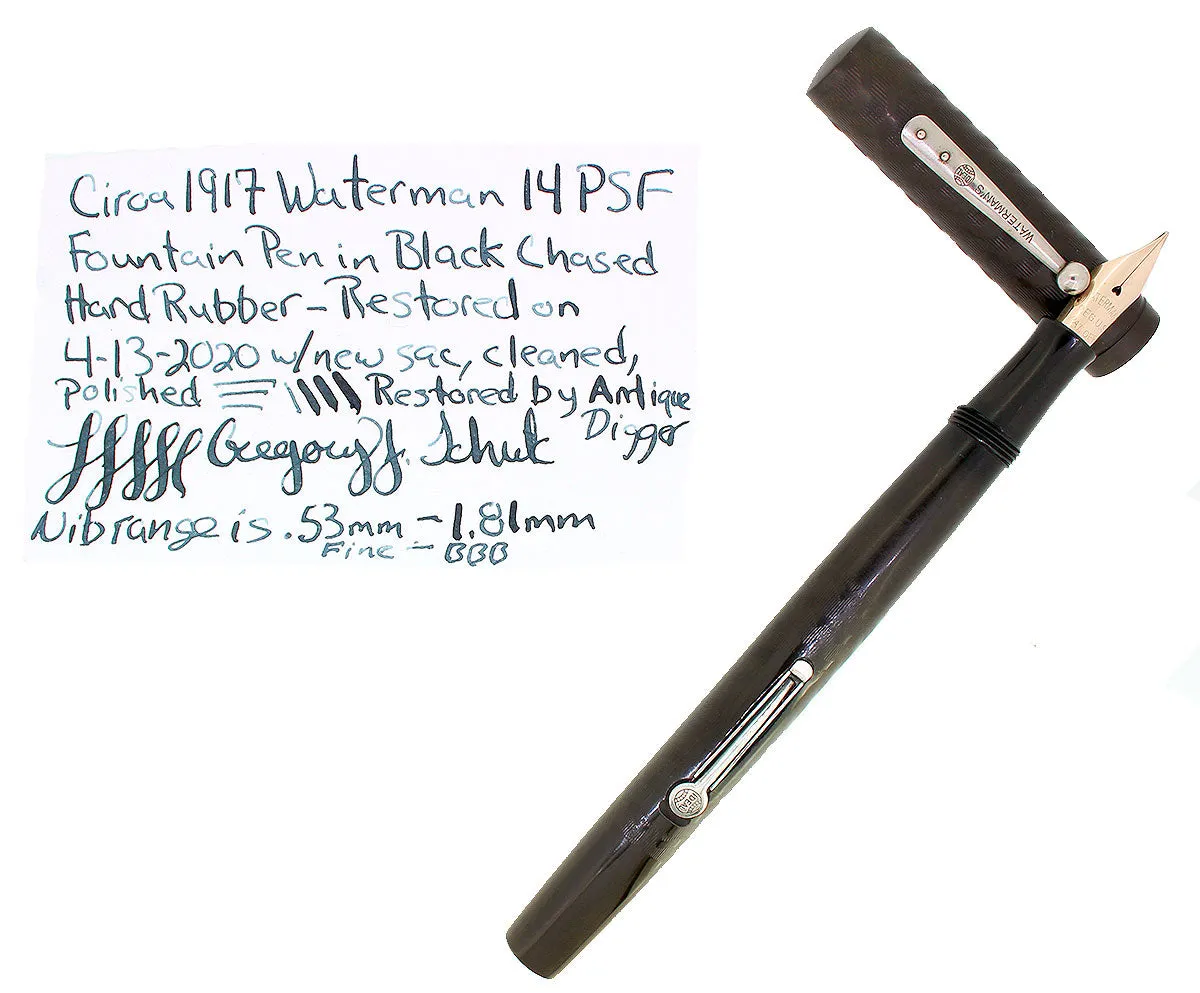 Circa 1917 Waterman 14 PSF
Fountain Pen in Black Chased
Hard Rubber - Restored on
4-13-2020 w/new sac, cleaned,
Polished Restored by Antique
Digger
Gregory J.
Nib range is .53mm - 1.81mm
Fine - BBB
WATERMAN'S
IDEAL
IDEAL